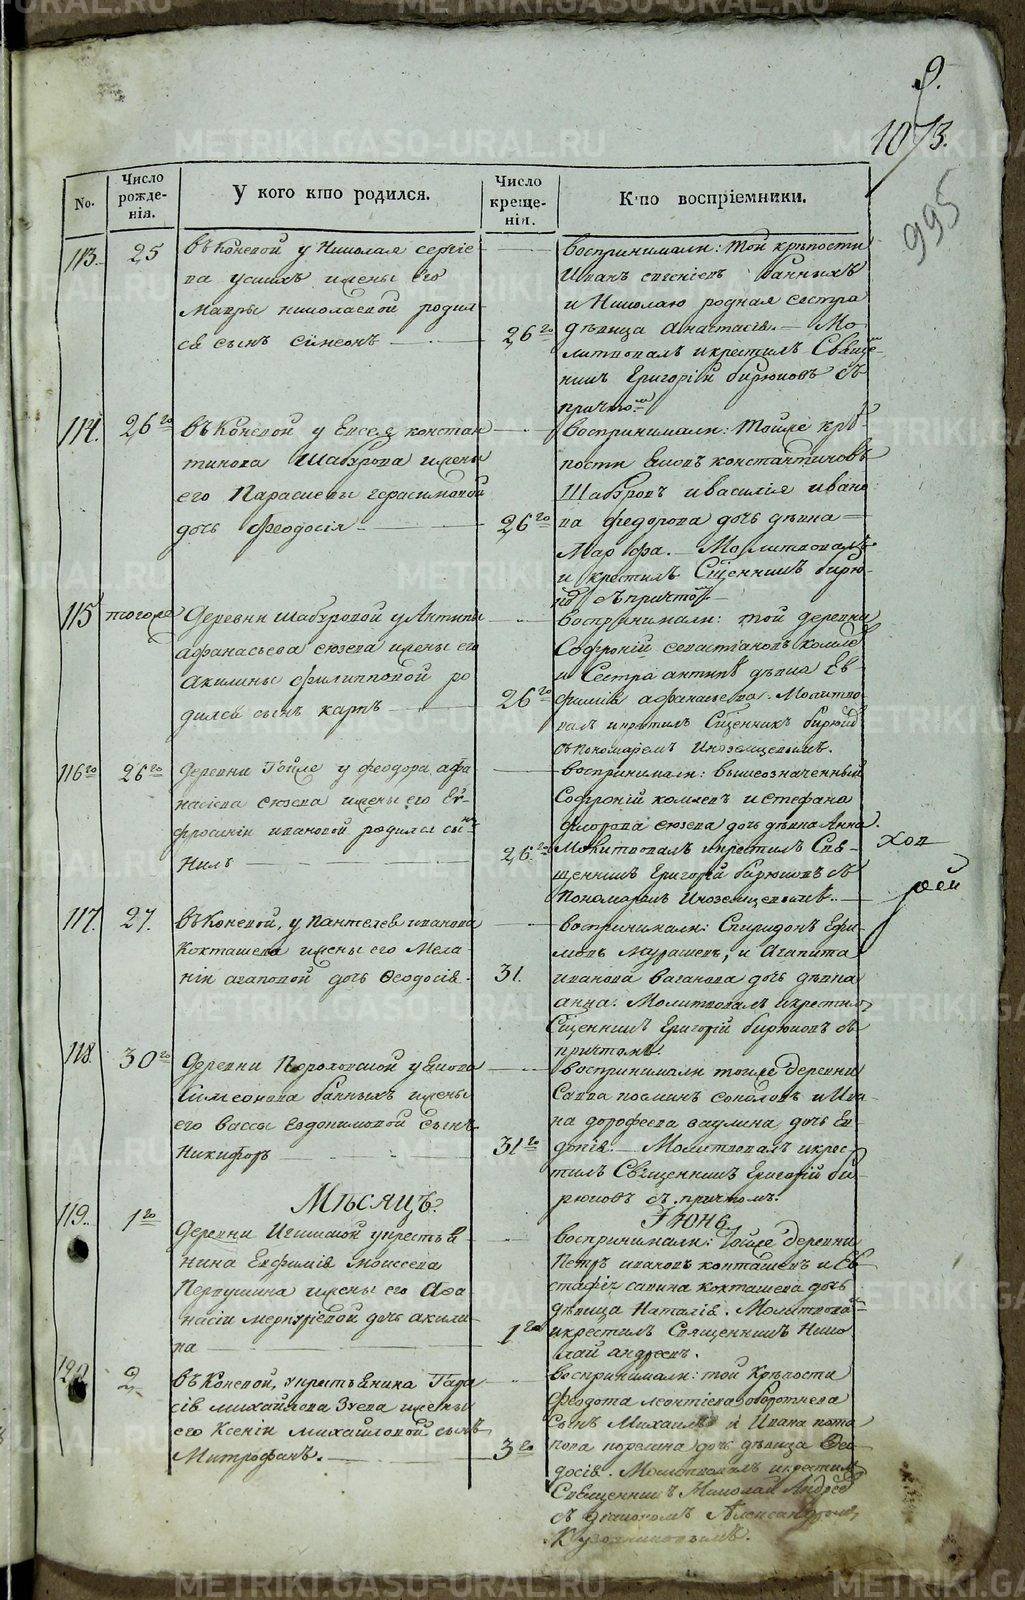 9.
1073.
995
No.
Число рожде-нія.
У кого кто родился.
Число креще-нія.
Кто воспріемники.
113.
25
въ Коневой у Николая сергіе
ва усихъ жены его
Мавры николаевой родил
ся сынъ симеонъ
26го
воспринимали: той крѣпости
Иванъ Банныхъ
и Николаю родная сестра
дѣвица анастасія. — Мо
литвовалъ и крестилъ Свяще-
нникъ Григорій бирюковъ съ
причто
114.
26го
въ Коневой у Евсея констан
тинова Шаброва жены
его Парасковьи герасимовой
дочь Феодосія
26го
воспринимали: тойже крѣ
пости константиновъ
Шабровъ и василія ивано
ва федорова дочь дѣвка
Марфа. — Молитвовалъ
и крестилъ Сщенникъ бирю-
съ причто
115
тогоже
Деревни шабровой у Антипы
афанасьева сюзева жены его
акилины филипповой ро
дился сынъ карпъ
26го
воспринимали: той деревни
Софроній севастіановъ
и Сестра антипѣ дѣвка Ев
фимія афанасьева. Молитво-
валъ и крестилъ Сщенникъ бирюковъ
съ пономаремъ Иноземцевымъ.
116го
26го
Деревни Тойже у феодора афа
насіева сюзева жены его Ев-
фросиніи ивановой родился сынъ
Нилъ
26го
воспринимали: вышеозначенный
Софроній и стефана
федорова сюзева дочь дѣвка Анна.
Молитвовалъ и крестилъ Свя-
щенникъ Григорій бирюковъ съ
Пономаремъ Иноземцевымъ.
117.
27.
въ Коневой, у Пантелея иванова
Кокшарева жены его Мела
ніи агаповой дочь Феодосія.
31.
воспринимали: Спиридонъ Ефи-
мовъ Мурашевъ, и Агапита
иванова ваганова дочь дѣвка
анна. Молитвовалъ и крестилъ
Сщенникъ Григорій бирюковъ съ
причтомъ.
118.
30го
Деревни у Якова
Симеонова банныхъ жены
его вассы евдокимовой сынъ
Никифоръ
31го
воспринимали тойже деревни
Савва козминъ соколовъ и Ива
на дорофеева ваулина дочь Ев
докія. — Молитвовалъ и крес-
тилъ Священникъ Григорій би
рюковъ съ причтомъ.
Мѣсяцъ. Іюнь.
119.
1го
Деревни у крестья
нина Евфимія Моисеева
Первушина жены его Афа
насіи меркуріевой дочь акили
на
1го
воспринимали: Тойже деревни
Петръ ивановъ и Ев
стафія савина дочь
дѣвица Наталія. Молитвовалъ
и крестилъ Священникъ Нико
лай андреевъ.
120
2
въ Коневой, у крестьянина Гера
сія михайлова Зуева жены
его Ксеніи михайловой сынъ
Митрофанъ.
3го
воспринимали: той Крѣпости
Феодота леонтіева оборотнева
сынъ Михаилъ и Ивана пота
пова дочь дѣвица Фео
досія. Молитвовалъ и крестилъ
Священникъ Николай Андреевъ
съ дьякономъ Александромъ